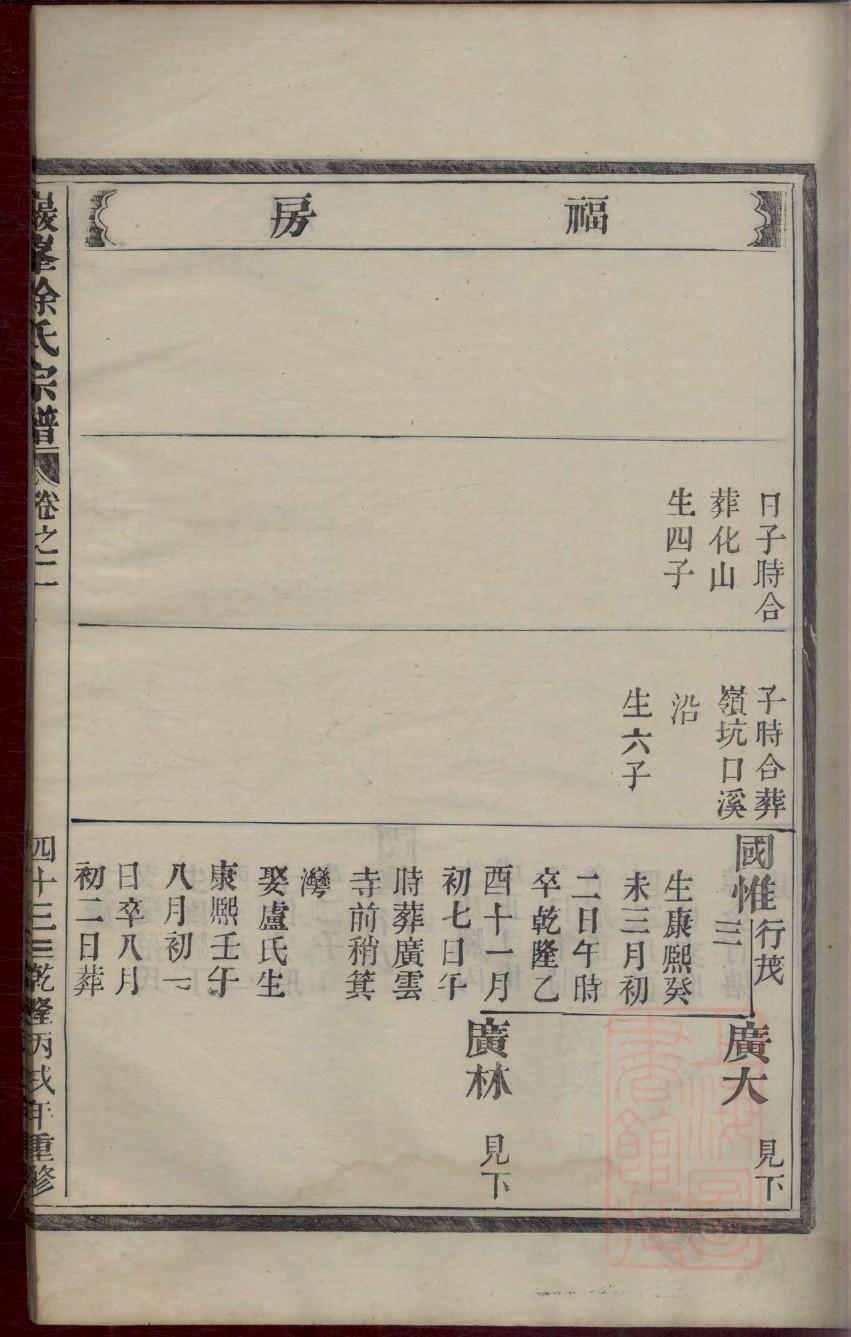 福房
日子時合
葬化山
生四子
子時合葬
嶺坑口溪
沿
生六子
國惟
行茂
三
生康熙癸
未三月初
二日午時
卒乾隆乙
酉十一月
初七日午
時葬廣雲
寺前稍箕
灣
娶盧氏生
康熙壬午
八月初一
日卒八月
初二日葬
廣大
見下
廣林
見下
巖峯徐氏宗譜
卷之二
四十三
乾隆丙戌年重修